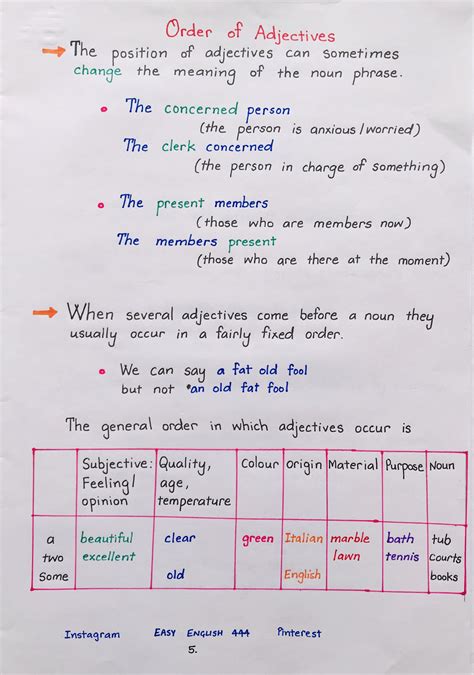 Order of Adjectives
The position of adjectives can sometimes
change the meaning of the noun phrase.
The concerned person
(the person is anxious/worried)
The clerk concerned
(the person in charge of something)
The present members
(those who are members now)
The members present
(those who are there at the moment)
When several adjectives come before a noun they
usually occur in a fairly fixed order.
We can say a fat old fool
but not *an old fat fool
The general order in which adjectives occur is
Subjective: Quality, Colour Origin Material Purpose Noun
Feeling/ age,
opinion temperature
a beautiful clear green Italian marble bath tub
two excellent lawn tennis courts
Some old English books
Instagram EASY ENGLISH 444 Pinterest
5.